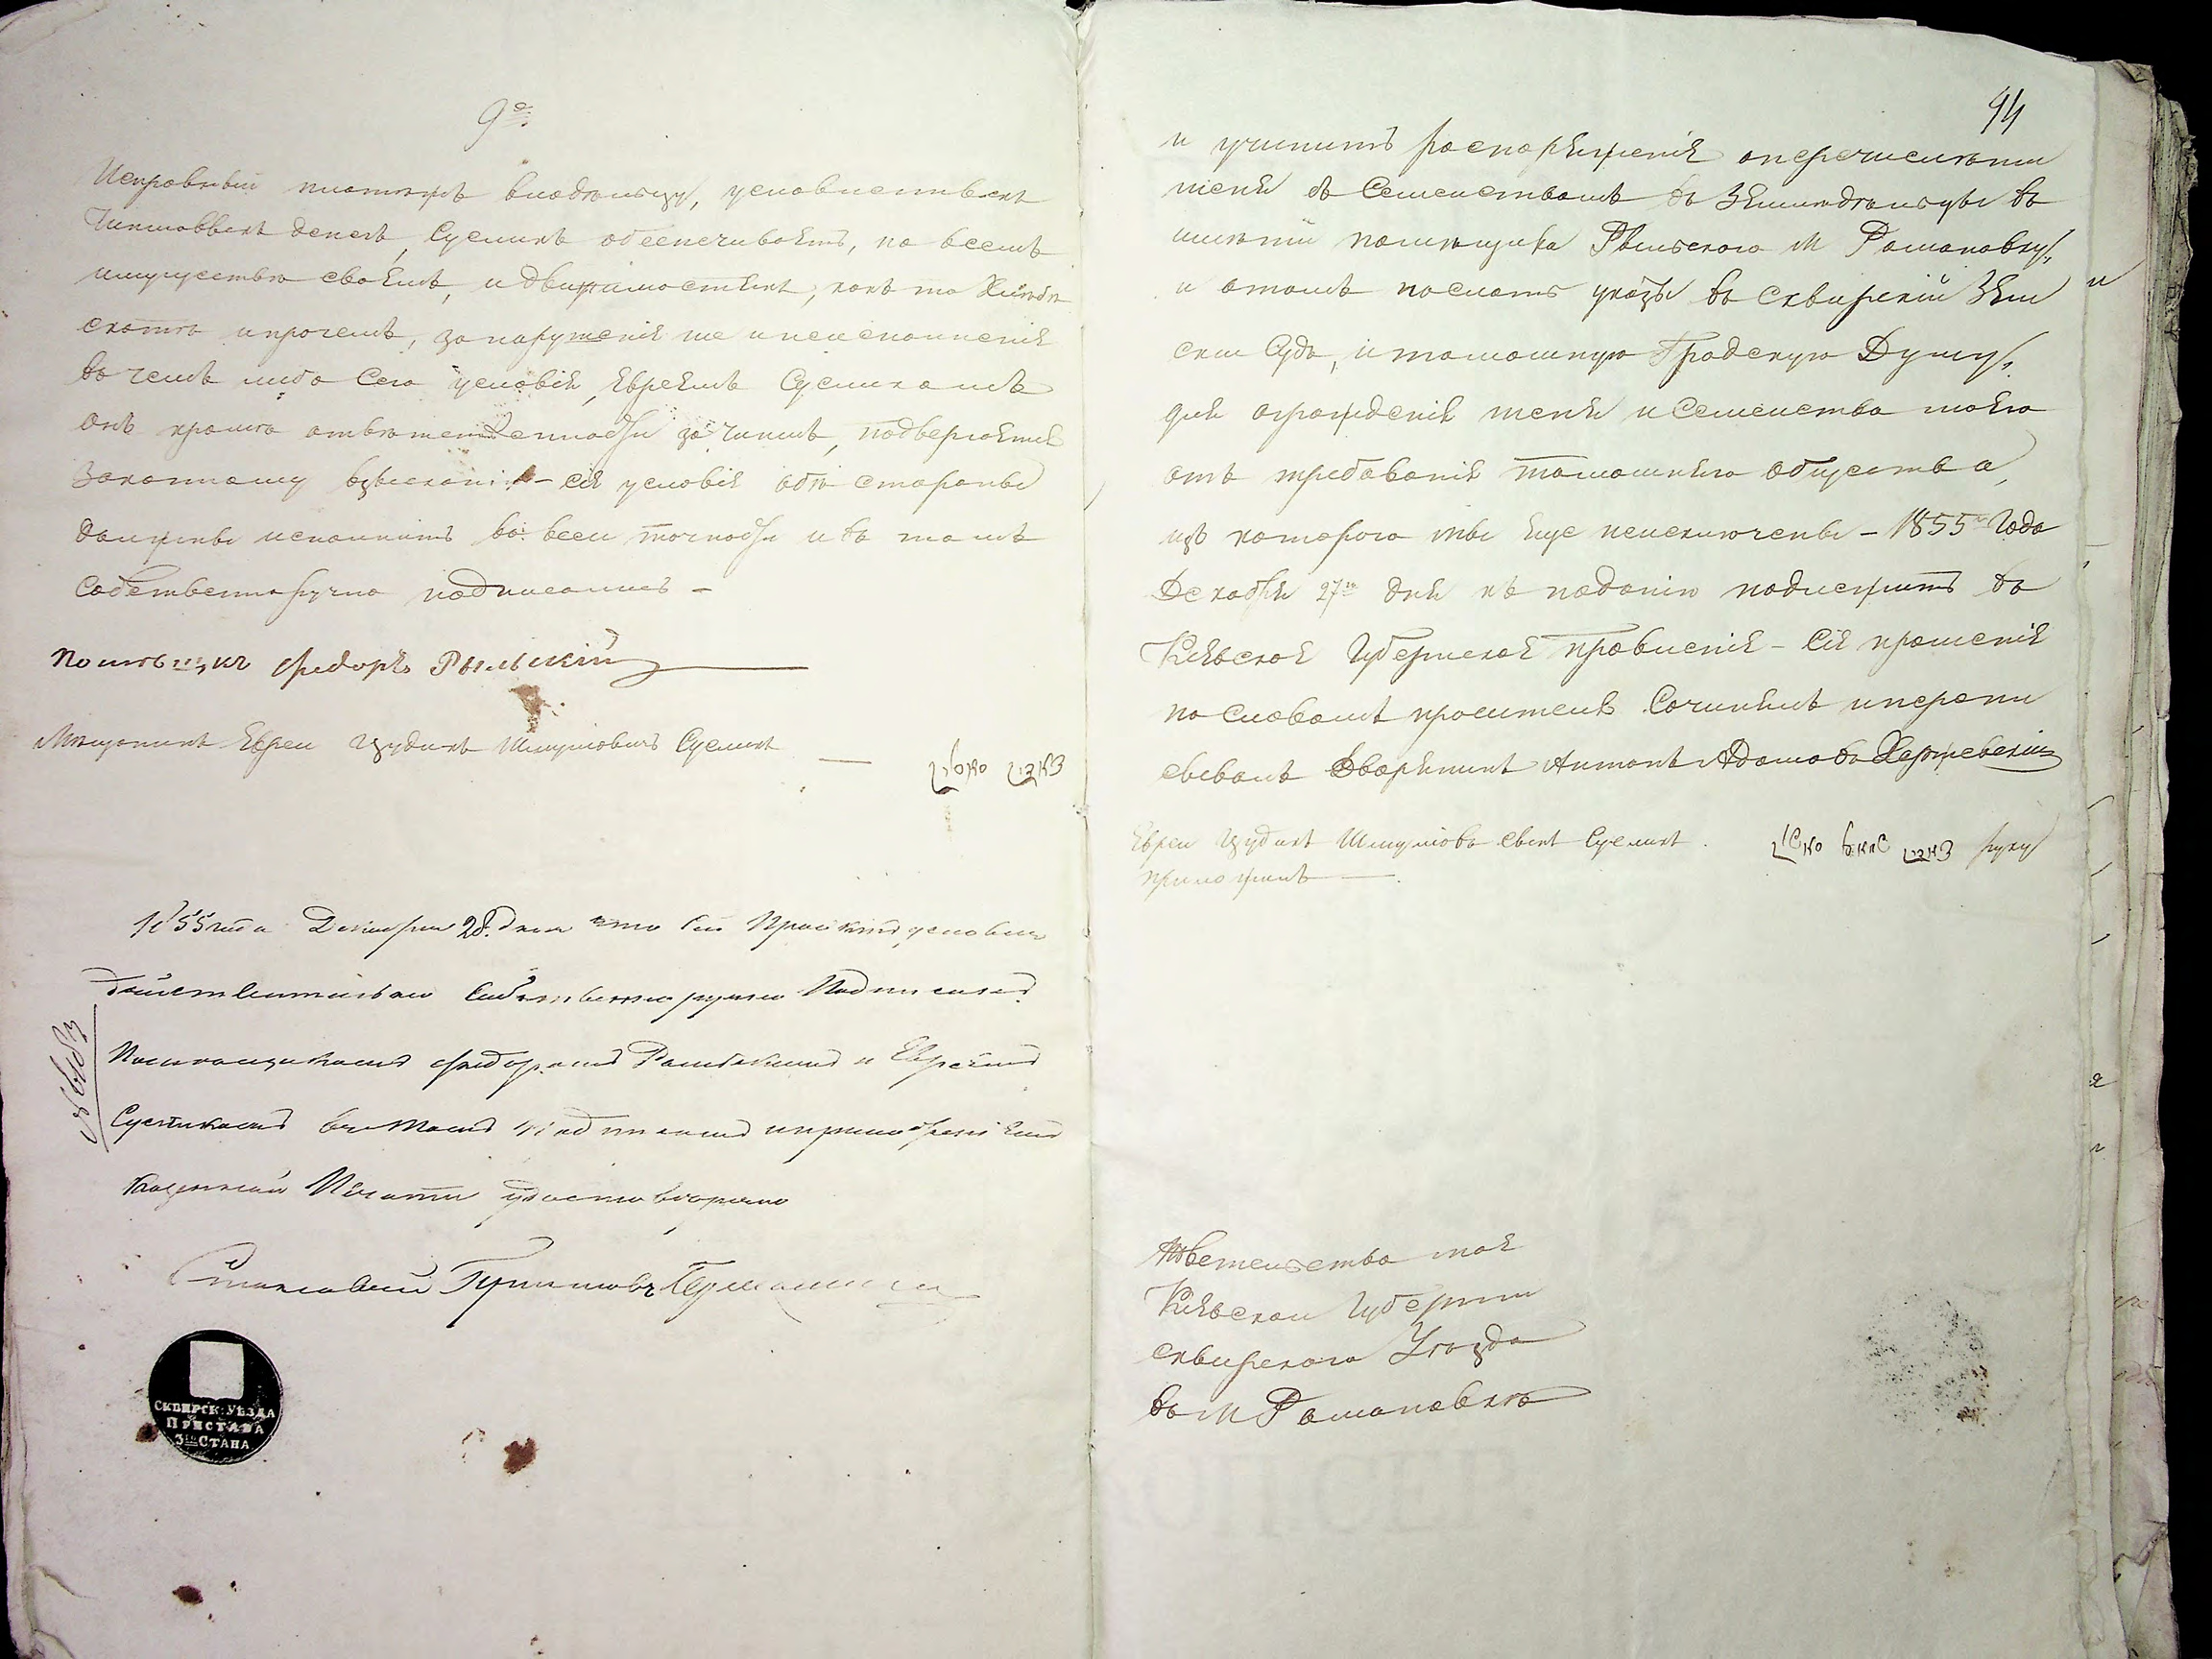 9е
Исправный платежъ владѣльцу, условлетныхъ
Чиншовыхъ денегъ, Сусликъ обеспечиваетъ, на всемъ
имуществѣ своемъ, и движимостяхъ, какъ то Хлѣбѣ
скотѣ ипрочемъ, за нарушеніе же инеисполненіе
въ чемъ либо Сего условія, Евреемъ Сусликомъ
онъ кромѣ отвѣтственности за Чиншъ, подвергается
Законному взысканію – сіе условіе обѣ стороны
должны исполнить во всей точности и въ томъ
Собственноручно подписались –
Помѣщикъ Федоръ Рыльскій
Мѣщанинъ Еврей Іудикъ Шмулiовичъ Сусликъ
1855 года Декабря 28 дня что Сей Проэктъ условія
дѣйствительно Собственноручно Подписанъ
Помѣщикомъ Федоромъ Рыльскимъ и Евреемъ
Сусликомъ въ томъ подписомъ иприложеніемъ
Казенной Печати удостовѣряю
Становой Приставъ
СКВИРСК: УѢЗДА
ПРИСТАВА
3го СТАНА
94
и учинить распоряженіе оперечисленіи
меня съ Семействомъ въ Земледѣльцы въ
имѣніи помѣщика Рыльского М Романовку,
и отомъ послать указы въ Сквирскій Зем
скій Судъ, итомошную Градскую Думу,
для огражденія меня и Семейства моего
отъ требованія томошнего общества,
изъ которого мы еще неисключены – 1855го Года
Декабря 27го дня къ поданію подлежитъ въ
Кіевское Губернское правленіе – Сіе прошеніе
по Словамъ просителя Сочинялъ иперепи
сывалъ Дворянинъ Антонъ Адамовъ
Еврей Іудикъ Шмулiовъ сынъ Сусликъ руку
приложилъ
Жительство мое
Кіевской Губерніи
Сквирского Уѣзда
въ М Романовкѣ